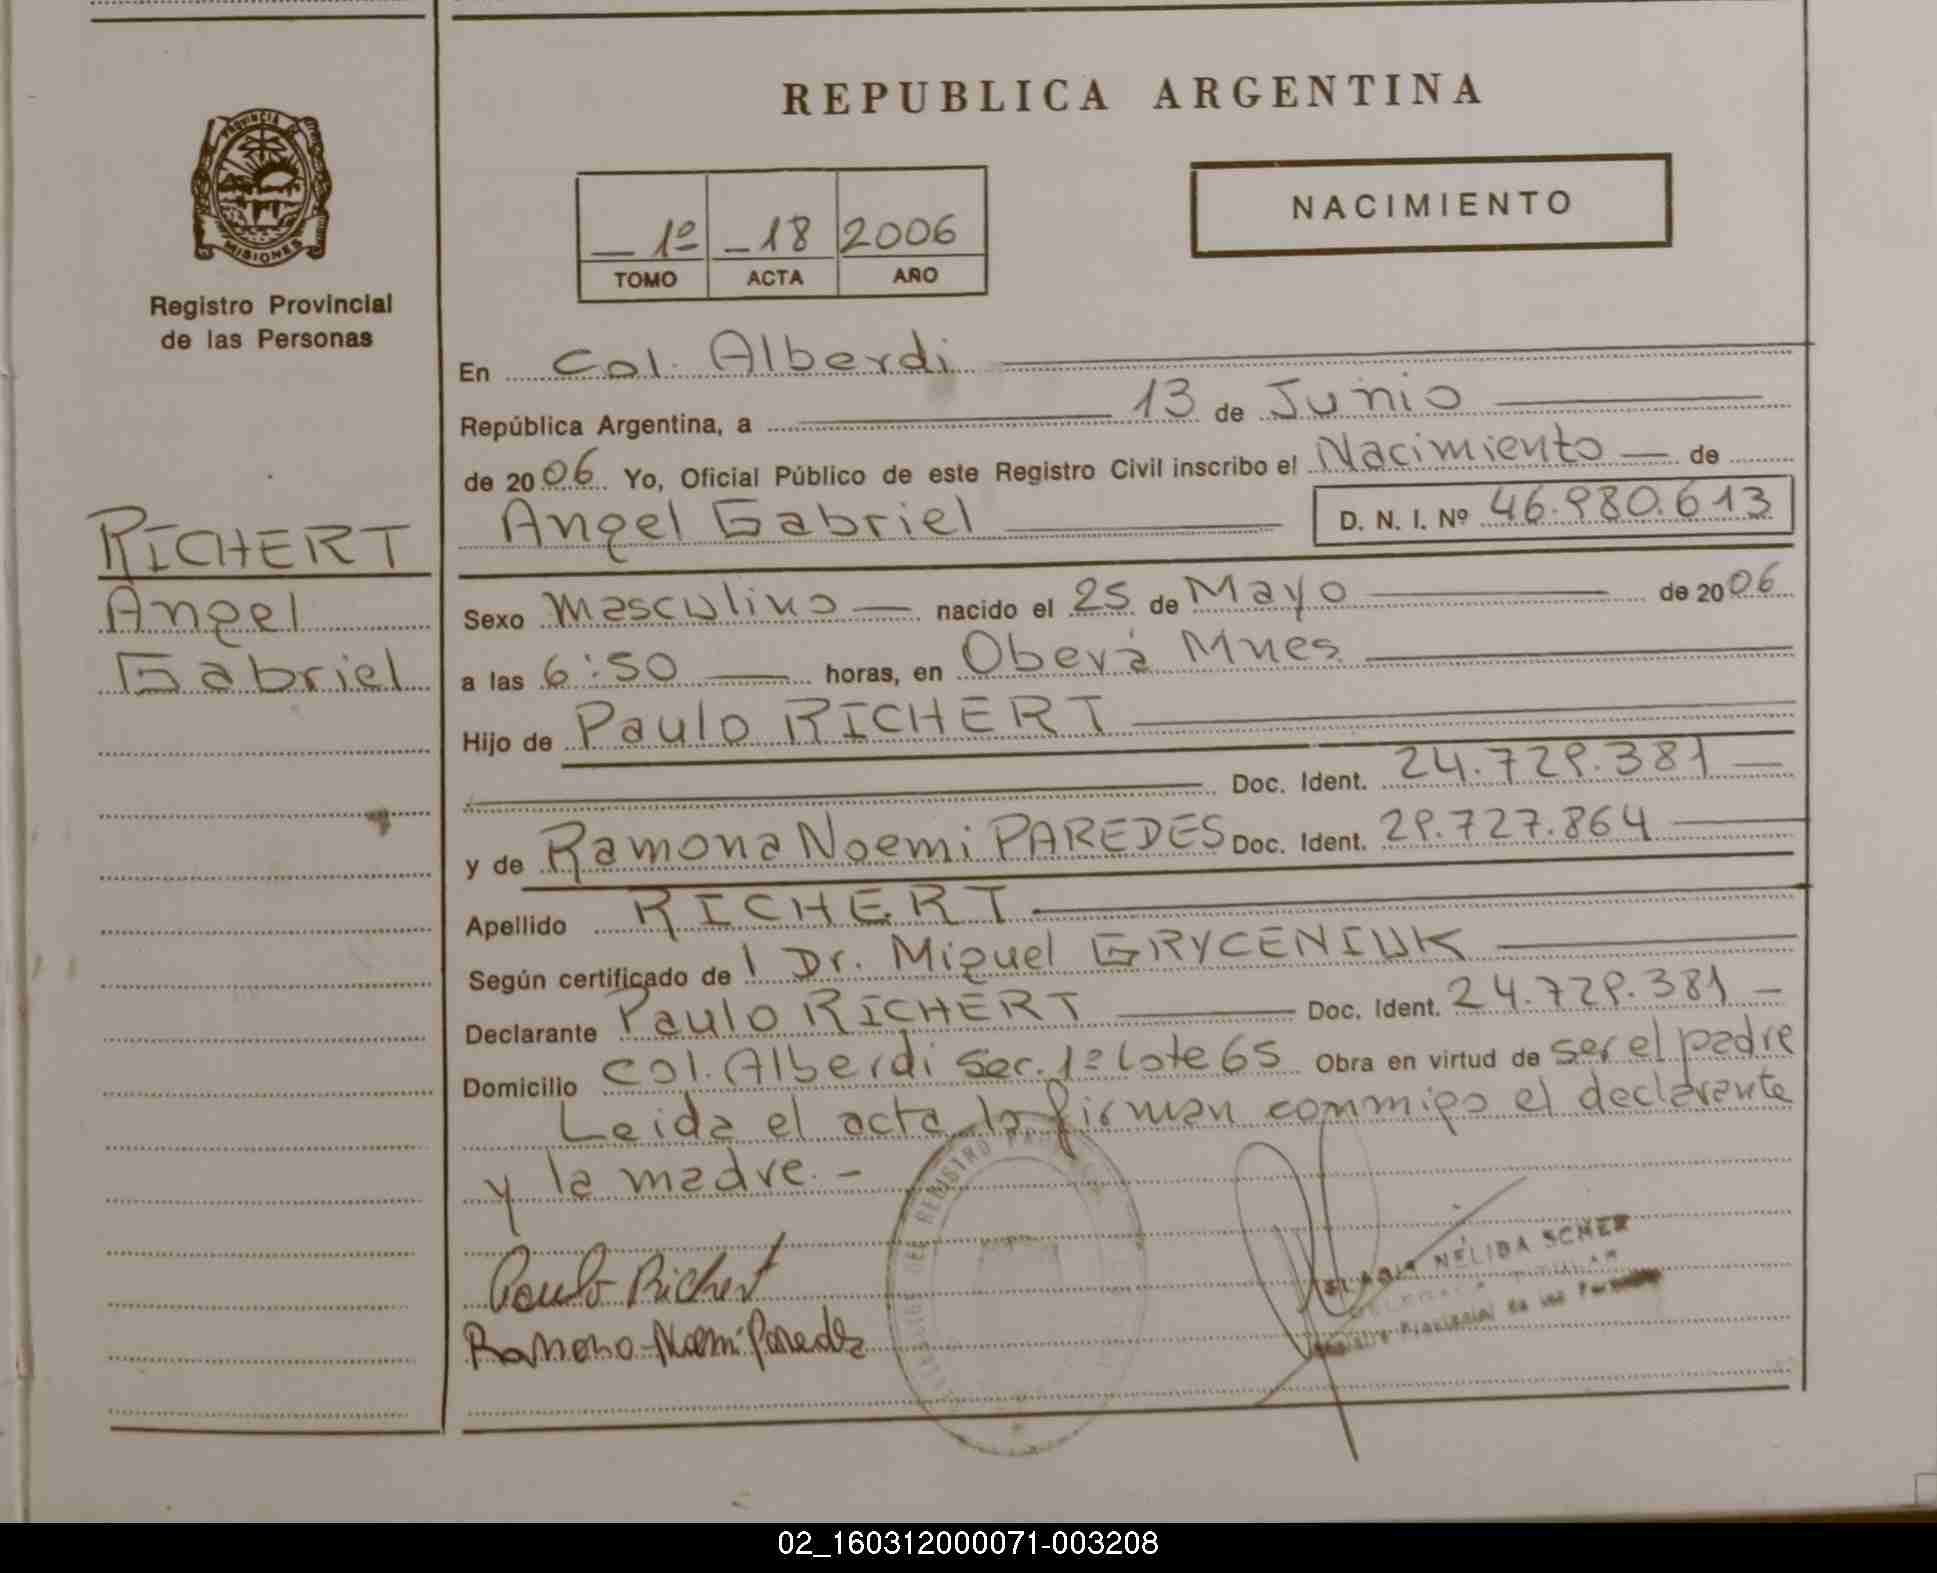 REPUBLICA ARGENTINA
PROVINCIA DE
MISIONES
Registro Provincial
de las Personas
1º 18 2006
TOMO ACTA AÑO
NACIMIENTO
En Col. Alberdi
República Argentina, a 13 de Junio
de 2006 Yo, Oficial Público de este Registro Civil inscribo el Nacimiento de
Angel Gabriel D. N. I. Nº 46.980.613
RICHERT
Angel
Gabriel
Sexo Masculino nacido el 25 de Mayo de 2006
a las 6:50 horas, en Oberá Mnes
Hijo de Paulo RICHERT
Doc. Ident. 24.729.381
y de Ramona Noemi PAREDES Doc. Ident. 29.727.864
Apellido RICHERT
Según certificado de l Dr. Miguel GRYCENIUK
Declarante Paulo RICHERT Doc. Ident. 24.729.381
Domicilio Col. Alberdi Sec. 1º Lote 65 Obra en virtud de ser el padre
Leida el acta la firman conmmigo el declarante
y la madre.-
Paulo Richert
Ramona Noemi Paredes
REGISTRO
NÉLIDA SCHER
TITULAR
Provincial de las Personas
02_160312000071-003208